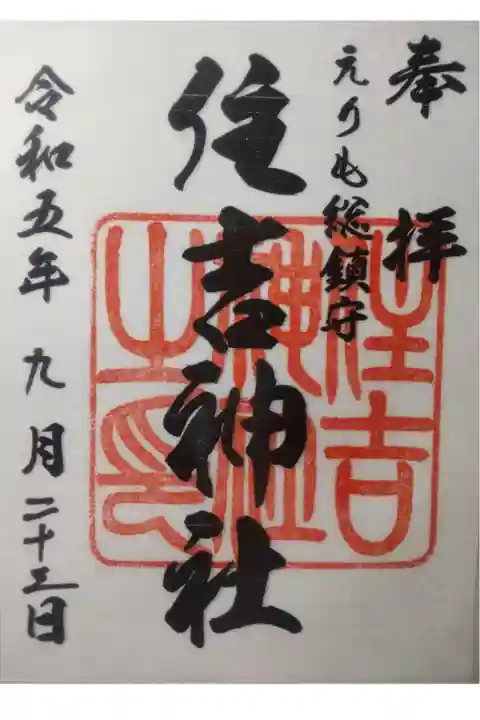 奉拝
えりも総鎮守
住吉神社
住吉神社之印
令和五年 九月二十三日